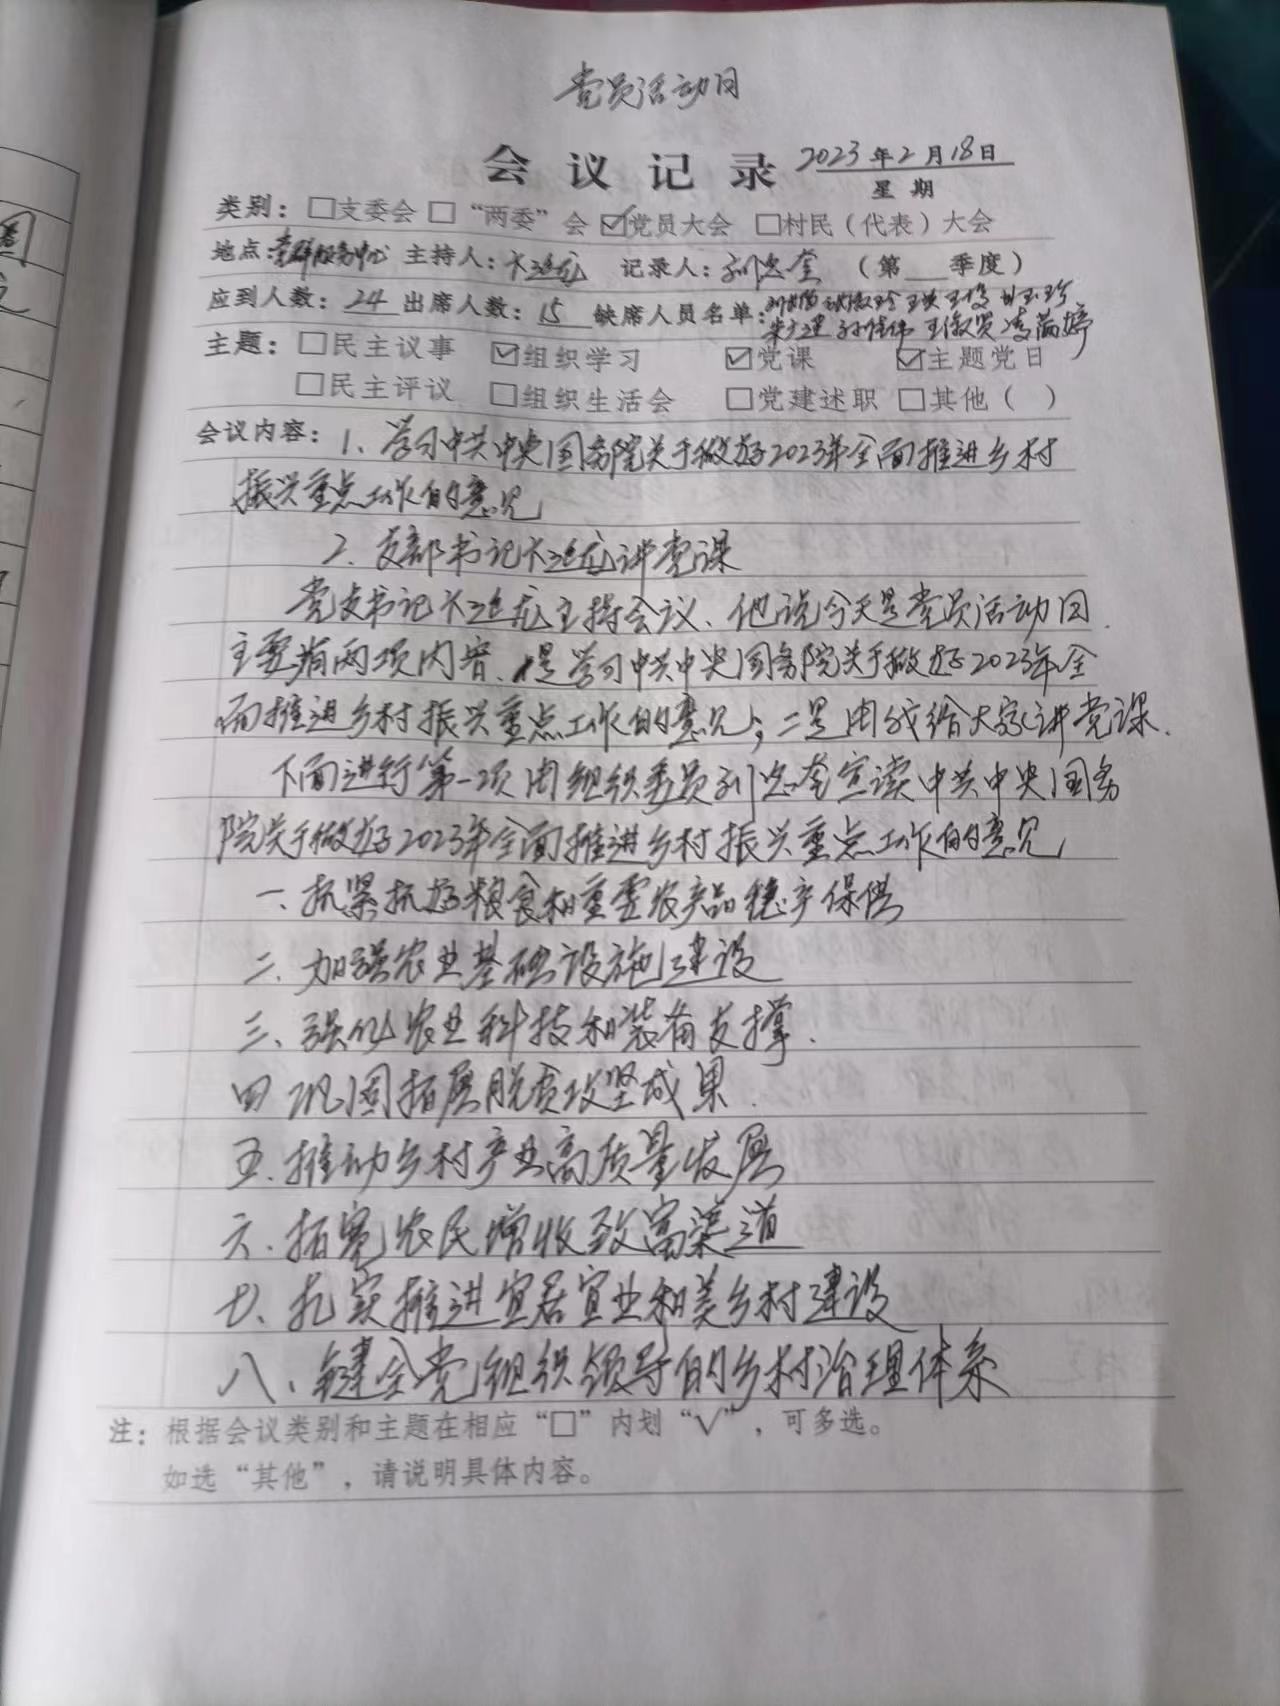 党员活动日
会议记录 2023年2月18日
星期
类别：□支委会 □“两委”会 ☑党员大会 □村民（代表）大会
地点：党群服务中心 主持人：卞延龙 记录人：刘忠奎 （第 季度）
应到人数：24 出席人数：15 缺席人员名单：
主题：□民主议事 ☑组织学习 ☑党课 ☑主题党日
□民主评议 □组织生活会 □党建述职 □其他（ ）
会议内容：1、学习中共中央国务院关于做好2023年全面推进乡村
振兴重点工作的意见
2、支部书记卞延龙讲党课
党支书记卞延龙主持会议、他说今天是党员活动日.
主要有两项内容、一是学习中共中央国务院关于做好2023年全
面推进乡村振兴重点工作的意见；二是由我给大家讲党课.
下面进行第一项由组织委员刘忠奎宣读中共中央国务
院关于做好2023年全面推进乡村振兴重点工作的意见
一、抓紧抓好粮食和重要农产品稳产保供
二、加强农业基础设施建设
三、强化农业科技和装备支撑.
四 巩固拓展脱贫攻坚成果.
五.推动乡村产业高质量发展
六.拓宽农民增收致富渠道
七、扎实推进宜居宜业和美乡村建设
八、健全党组织领导的乡村治理体系
注：根据会议类别和主题在相应“□”内划“√”，可多选。
如选“其他”，请说明具体内容。